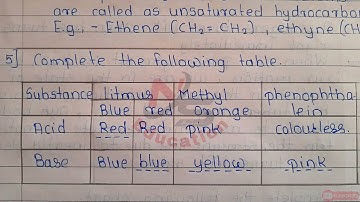 are called as unsaturated hydrocarbo
E.g., - Ethene (CH₂ = CH₂), ethyne (CH
5] Complete the following table.
Substance Litmus Methyl phenophtha-
Blue red orange lein
Acid Red Red pink colourless.
Base Blue blue yellow pink
education